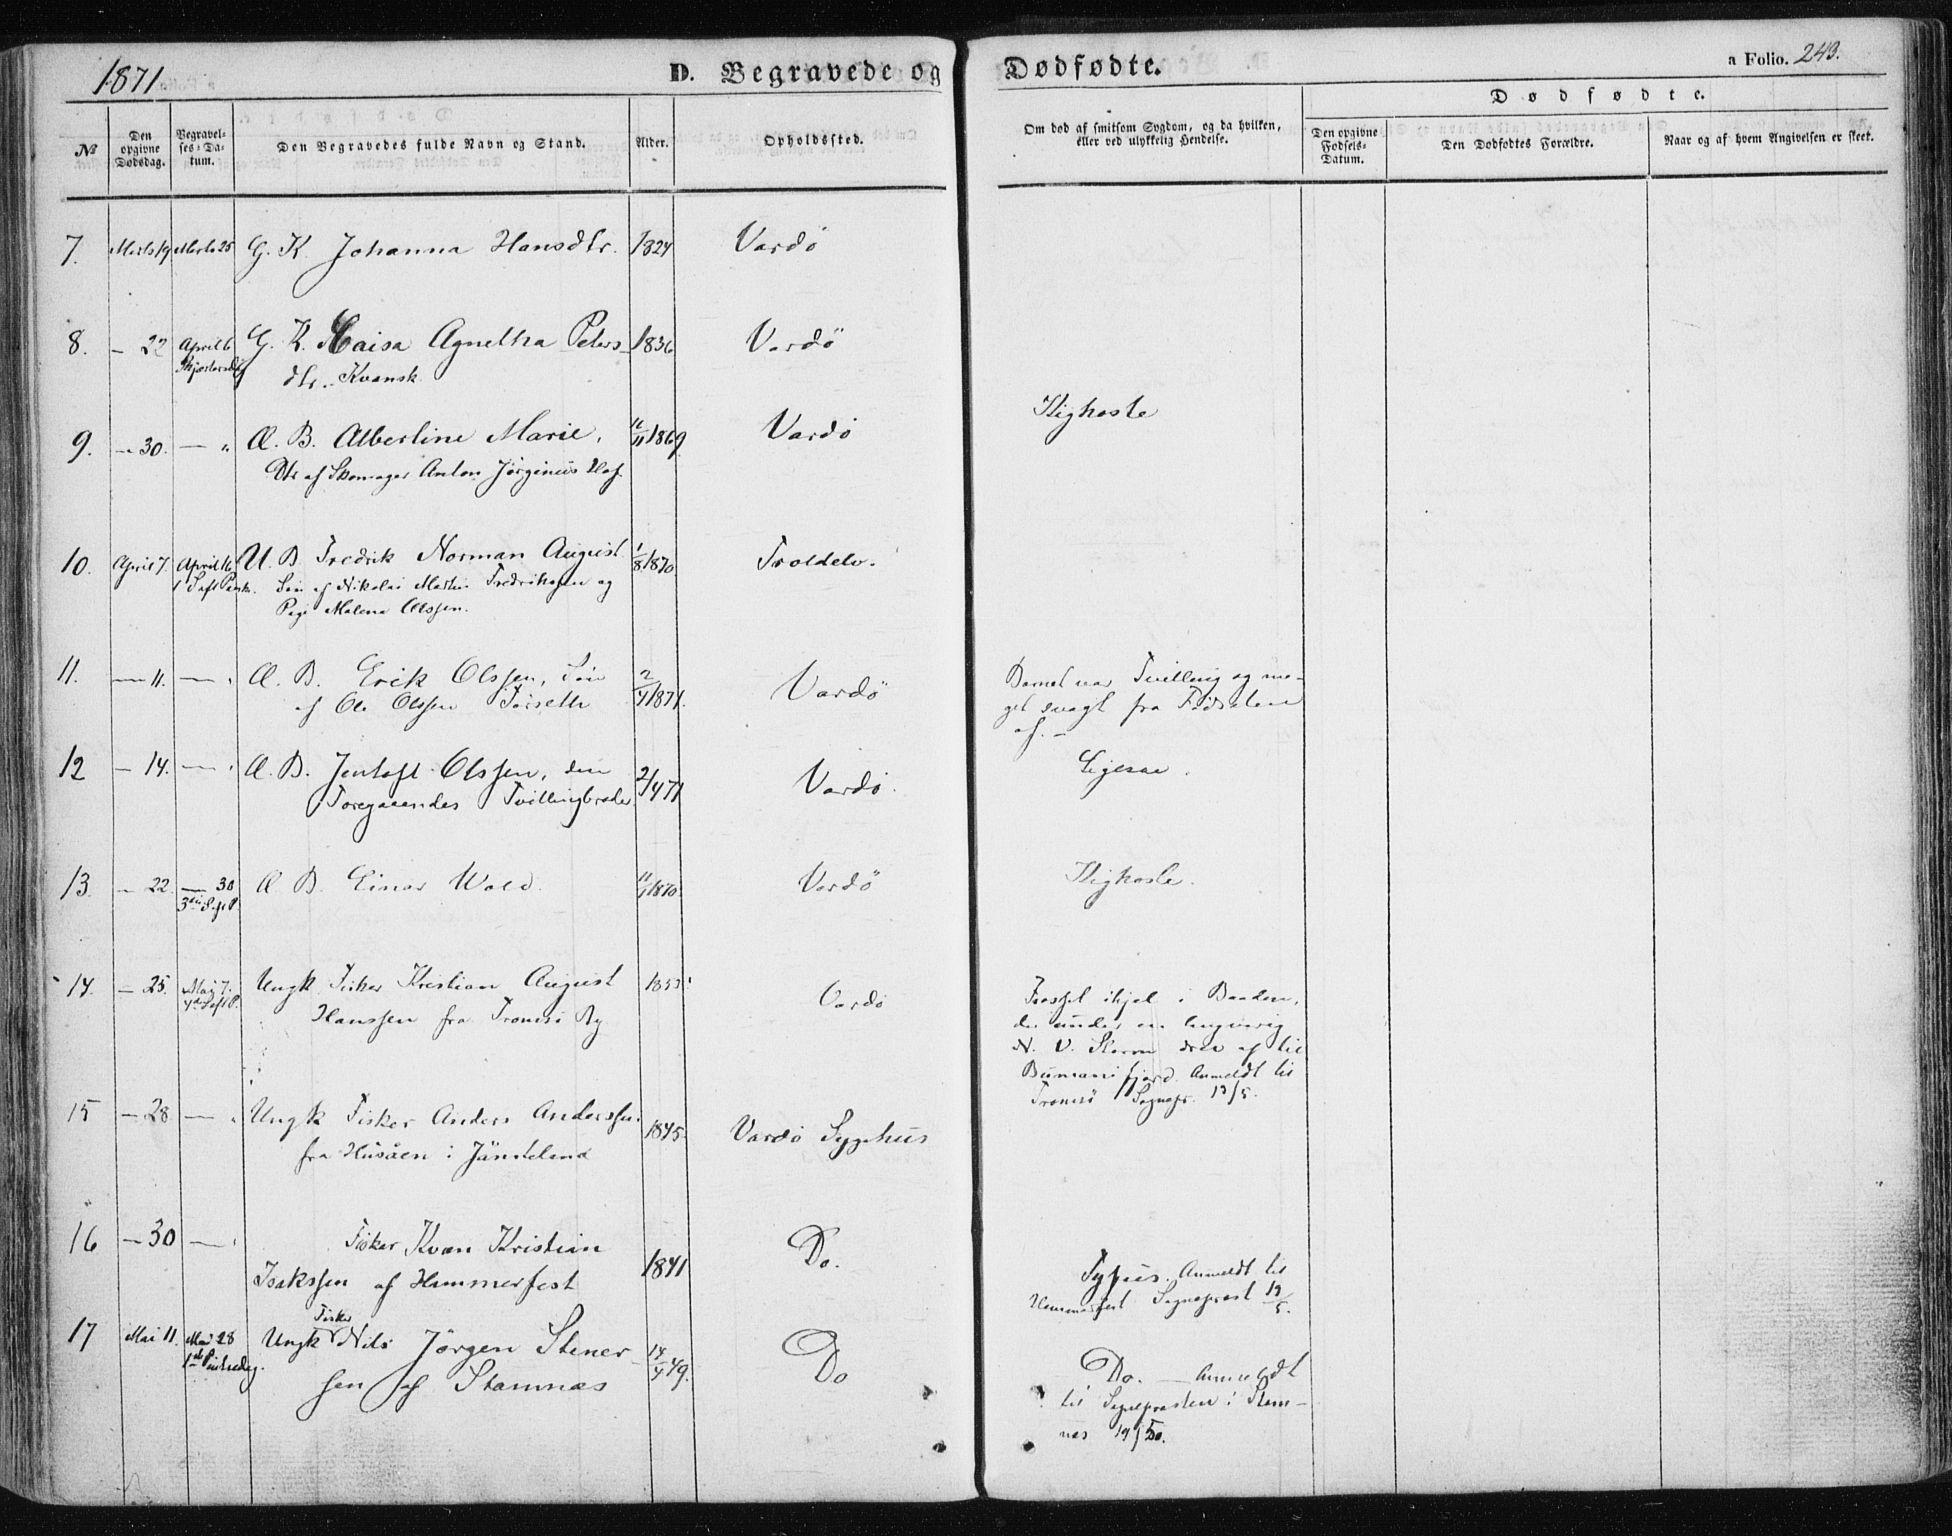 1871
D. Begravede og Dødfødte.
a Folio. 243.
Nº
Den opgivne Dødsdag.
Begravelses-Datum.
Den Begravedes fulde Navn og Stand.
Alder.
Opholdssted.
Om død af smitsom Sygdom, og da hvilken, eller ved ulykkelig Hendelse.
Dødfødte.
Den opgivne Fødsels-Datum.
Den Dødfødtes Forældre.
Naar og af hvem Angivelsen er skeet.
7. Marts 19 Marts 25 G. K Johanna Hansdtr. 1824 Vardö
8. — 22 April 6 G. K. Caisa Agnetha Peters 1836 Vardö
Skjærtorsdag dtr. Kvænsk
9. — 30. — " Æ. B. Albertine Marie, 11 1869 Vardö Kighoste
Dtr af Skomager Anton Jörginius Hof
10. April 7. April 16 U. B Fredrik Norman August 1/8 1870 Troldelv.
1 S eft Paask. Sön af Nikolai Martin Fredriksen og
Pige Malena Olssen.
11. — 11. — " Æ. B. Erik Olssen, Sön 2/4 1871. Vardö Barnet var Tvilling og me-
af Ole Olssen get svagt fra Födselen
af. —
12 — 14. — " Æ. B. Jentoft Olssen, den 2/4 71 Vardö. Ligesaa.
Foregaaendes Tvillingbroder
13. — 22. — 30 Æ. B. Einar Wold. 1870. Vardö Kighoste.
3die S eft P.
14. — 25. Mai 7. Ungk. Fisker Kristian August 1853 Vardö Frosset ihjel i Baaden,
4de S eft P. Hanssen fra Tromsö By der under en
N. V. Storm drev af til
Bumansfjord. Anmeldt til
Tromsö Sognepr. 13/5.
15 — 28 — " Ungk Fisker Anders Anderssen 1845. Vardö Sygehus
fra Husåen i Jämteland
16 — 30 — " Fisker Kvæn Kristian 1841 Do.
Isakssen af Hammerfest Tyfus. Anmeldt til
Hammerfest Sogneprest 19/5.
17 Mai 11. Mai 28 Ungk Fisker Nils Jörgen Stener- 14/4 49. Do
1ste Pintsedag. sen af Stamnæs Do. — Anmeldt
til Sognepræsten i Stam-
næs 19/5